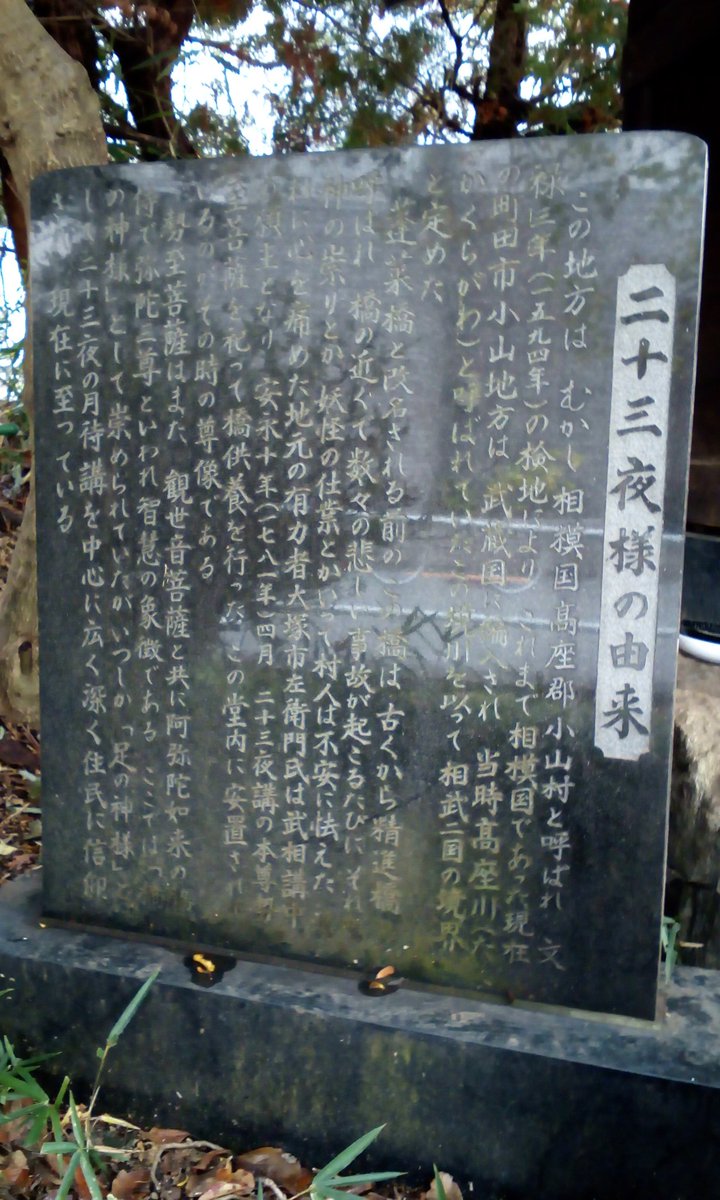 二十三夜様の由来
この地方は むかし 相模国高座郡小山村と呼ばれ 文
禄三年(一五九四年)の検地により それまで相模国であった現在
の町田市小山地方は 武蔵国に編入され 当時高座川(た
かくらがわ)と呼ばれていたこの境川を以って 相武二国の境界
と定めた
蓬莱橋と改名される前のこの橋は古くから精進橋
呼ばれ 橋の近くで数々の悲しい事故が起こるたびに それ
神の祟りとか 妖怪の仕業とかいって村人は不安に怯えた
に心を痛めた地元の有力者大塚市左衛門氏は武相講中
領主となり 安永十年(一七八一年)四月 二十三夜講の本尊
至菩薩を祀って橋供養を行った この堂内に安置され
いるのがその時の尊像である
勢至菩薩はまた 観世音菩薩と共に阿弥陀如来の
侍で弥陀三尊といわれ智慧の象徴である ここでは
の神様」として崇められていたが いつしか「足の神様」と
して二十三夜の月待講を中心に広く深く住民に信仰
され 現在に至っている